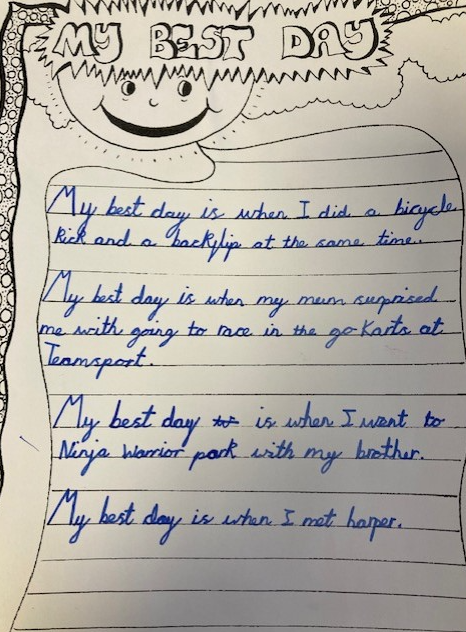 MY BEST DAY
My best day is when I did a bicycle
kick and a backflip at the same time.
My best day is when my mum surprised
me with going to race in the go-karts at
Teamsport.
My best day is when I went to
Ninja Warrior park with my brother.
My best day is when I met harper.